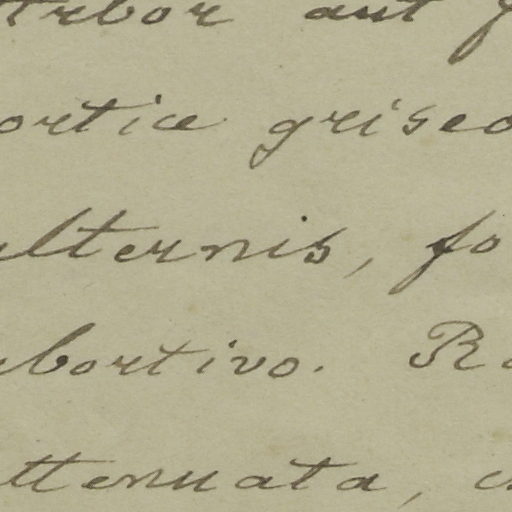 Arbor aut f
ortice griseo
alternis, fo
abortivo. Ra
ttenuata, c